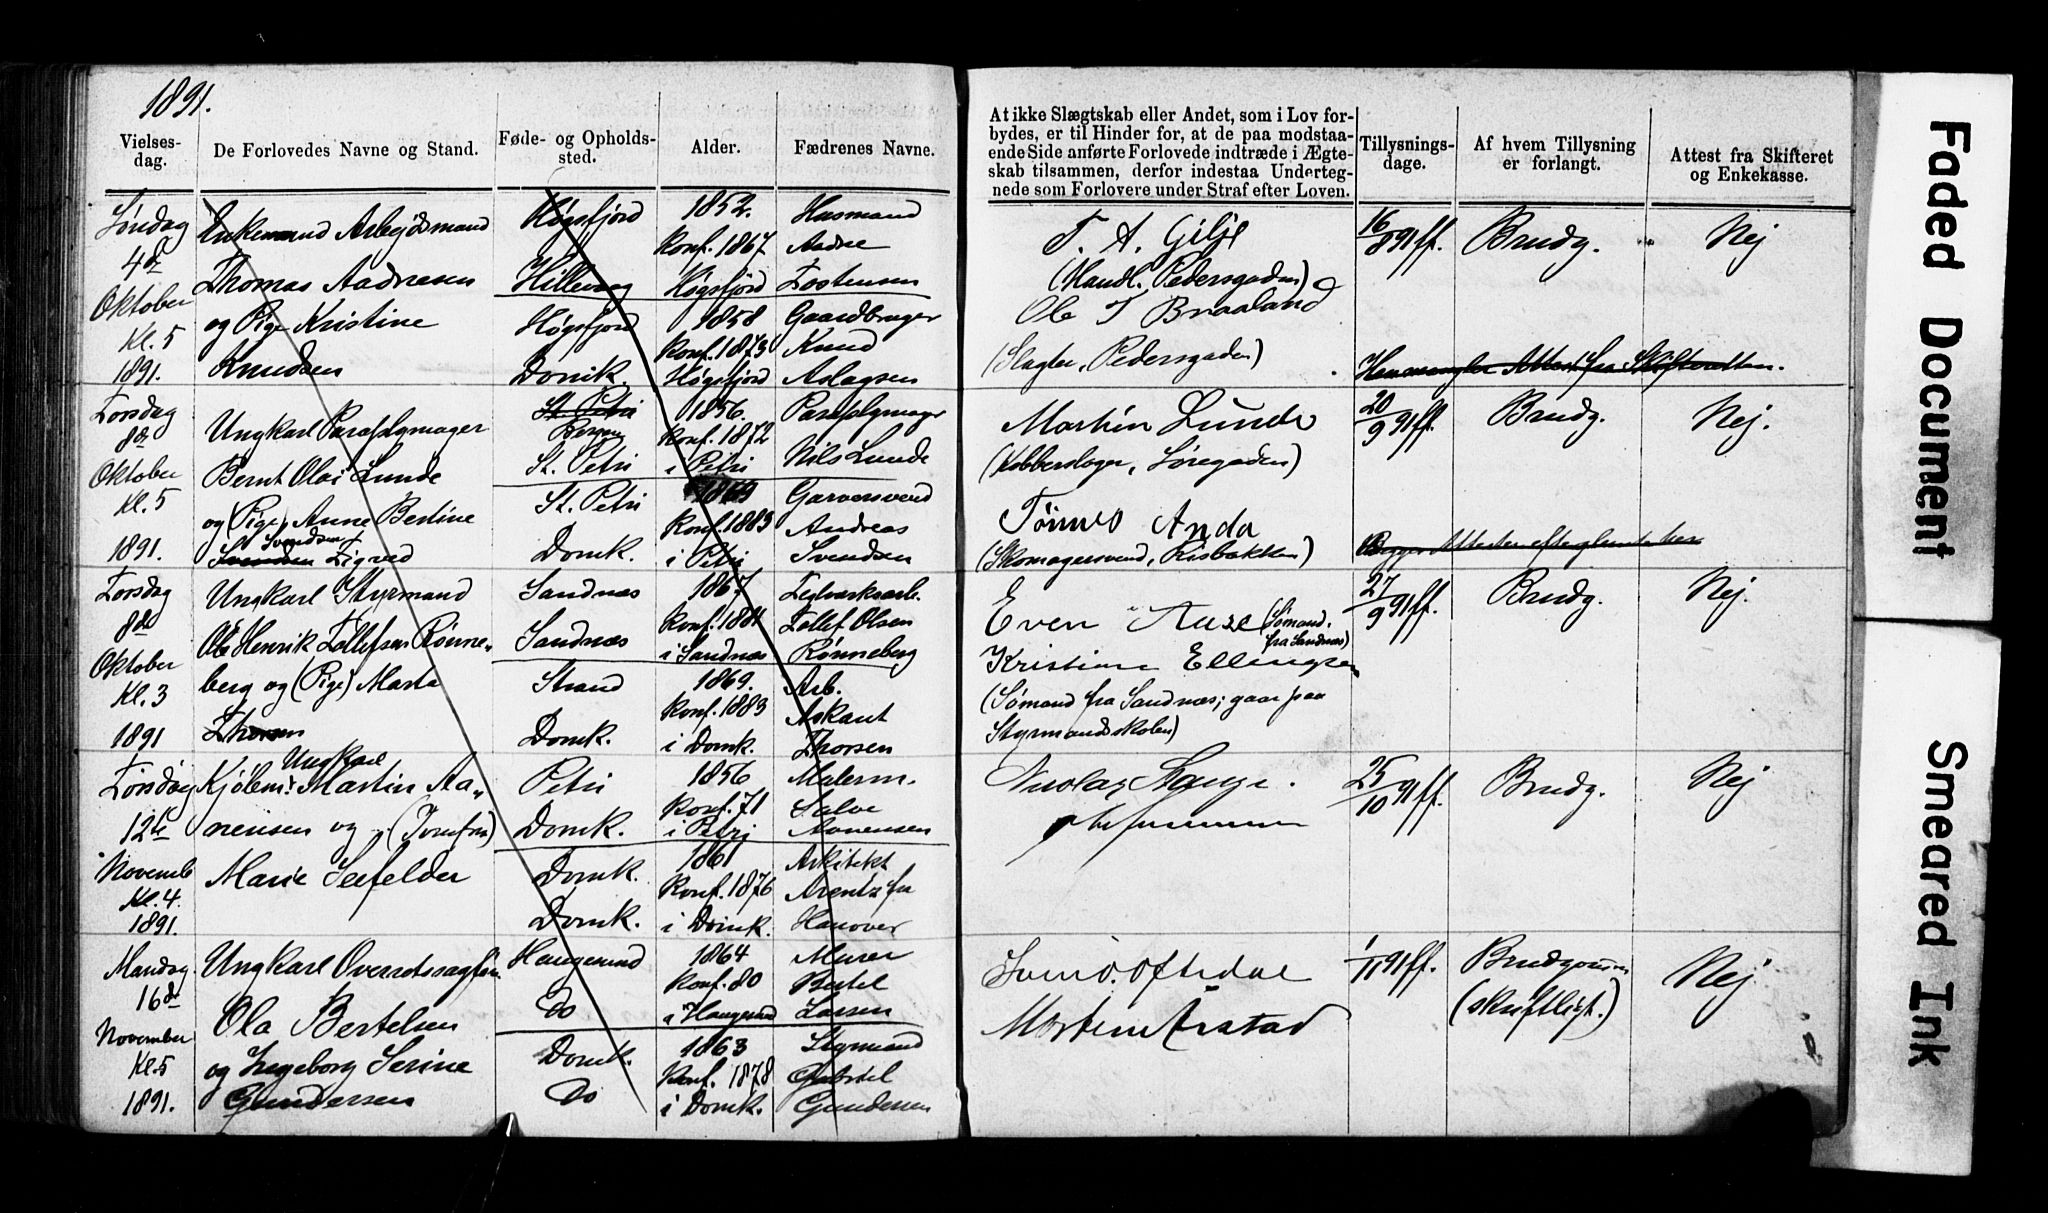 1891.
Vielses-
dag.
De Forlovedes Navne og Stand.
Føde- og Opholds-
sted.
Alder.
Fædrenes Navne.
At ikke Slægtskab eller Andet, som i Lov for-
bydes, er til Hinder for, at de paa modstaa-
ende Side anførte Forlovede indtræde i Ægte-
skab tilsammen, derfor indestaa Underteg-
nede som Forlovere under Straf efter Loven.
Tillysnings-
dage.
Af hvem Tillysning
er forlangt.
Attest fra Skifteret
og Enkekasse.
Søndag
4de
Oktober
Kl. 5
1891.
Enkemand Arbejdsmand
Thomas Aadnesen
og Pige Kristine
Knudsen
Høgsfjord
Hillevaag
Høgsfjord
Domk.
1852.
Konf. 1867
Høgsfjord
1858
Konf. 1873
Høgsfjord
Husmand
Aadne
Tostensen
Gaardbruger
Knud
Aslagsen
T. A. Gilje
(Handl. Pedersgaden)
Ole T Braaland
(Slagter, Pedersgaden)
16/8 91 ff.
Brudg.
Nej
Attest fra Skifteretten.
Torsdag
8de
Oktober
Kl. 5
1891.
Ungkarl Paraplymager
Bernt Olai Lunde
og (Pige) Anne Bertine
Svendsen
Svendsen Tigved
St. Petri
Bergen
St. Petri
St. Petri
Domk.
1856.
Konf. 1872
i Petri
1869
Konf. 1883
i Petri
Paraplymager
Nils Lunde
Garversvend
Andreas
Svendsen
Martin Lunde
(Kobberslager, Søregaden)
Tønnes Anda
(Skomagersvend, Risbakken)
20/9 91 ff.
Brudg.
Nej.
Torsdag
8de
Oktober
Kl. 3
1891
Ungkarl Styrmand
Ole Henrik Tollefsen Rønne-
berg og (Pige) Marta
Thorsen
Sandnæs
Sandnæs
Strand
Domk.
1867.
Konf. 1881
i Sandnæs
1869.
Konf. 1883
i Domk.
Teglverksarb.
Tollef Olsen
Rønneberg
Arb.
Askant
Thorsen
Even Aase (Sømand
fra Sandnæs)
Kristian Ellingsen
(Sømand fra Sandnæs; gaar paa
Styrmandsskolen)
27/9 91 ff.
Brudg.
Nej.
Torsdag
12te
Novemb
Kl. 4.
1891.
Ungkarl
Kjøbm. Martin Aa-
nensen og (Jomfru)
Marie Seefelder
Petri
Domk.
Domk.
Domk.
1856
Konf. 71
i Petri
1861
Konf. 1876
i Domk.
Malerm.
Salve
Aanensen
Arkitekt
Arentz fra
Hanover
Nicolay
25/10 91 ff.
Brudg.
Nej
Mandag
16de
November
Kl. 5
1891.
Ungkarl Overretssagfør.
Ola Bertelsen
og Ingeborg Serine
Gundersen
Haugesund
Do
Domk.
Do
1864
Konf. 80
i Haugesund
1863
Konf. 1878
i Domk.
Murer
Bertel
Larsen
Styrmand
Gabriel
Gundersen
Oftedal
Morten Årstad
1/11 91 ff.
Brudgommen
(skriftligt.)
Nej
Faded Document
Smeared Ink